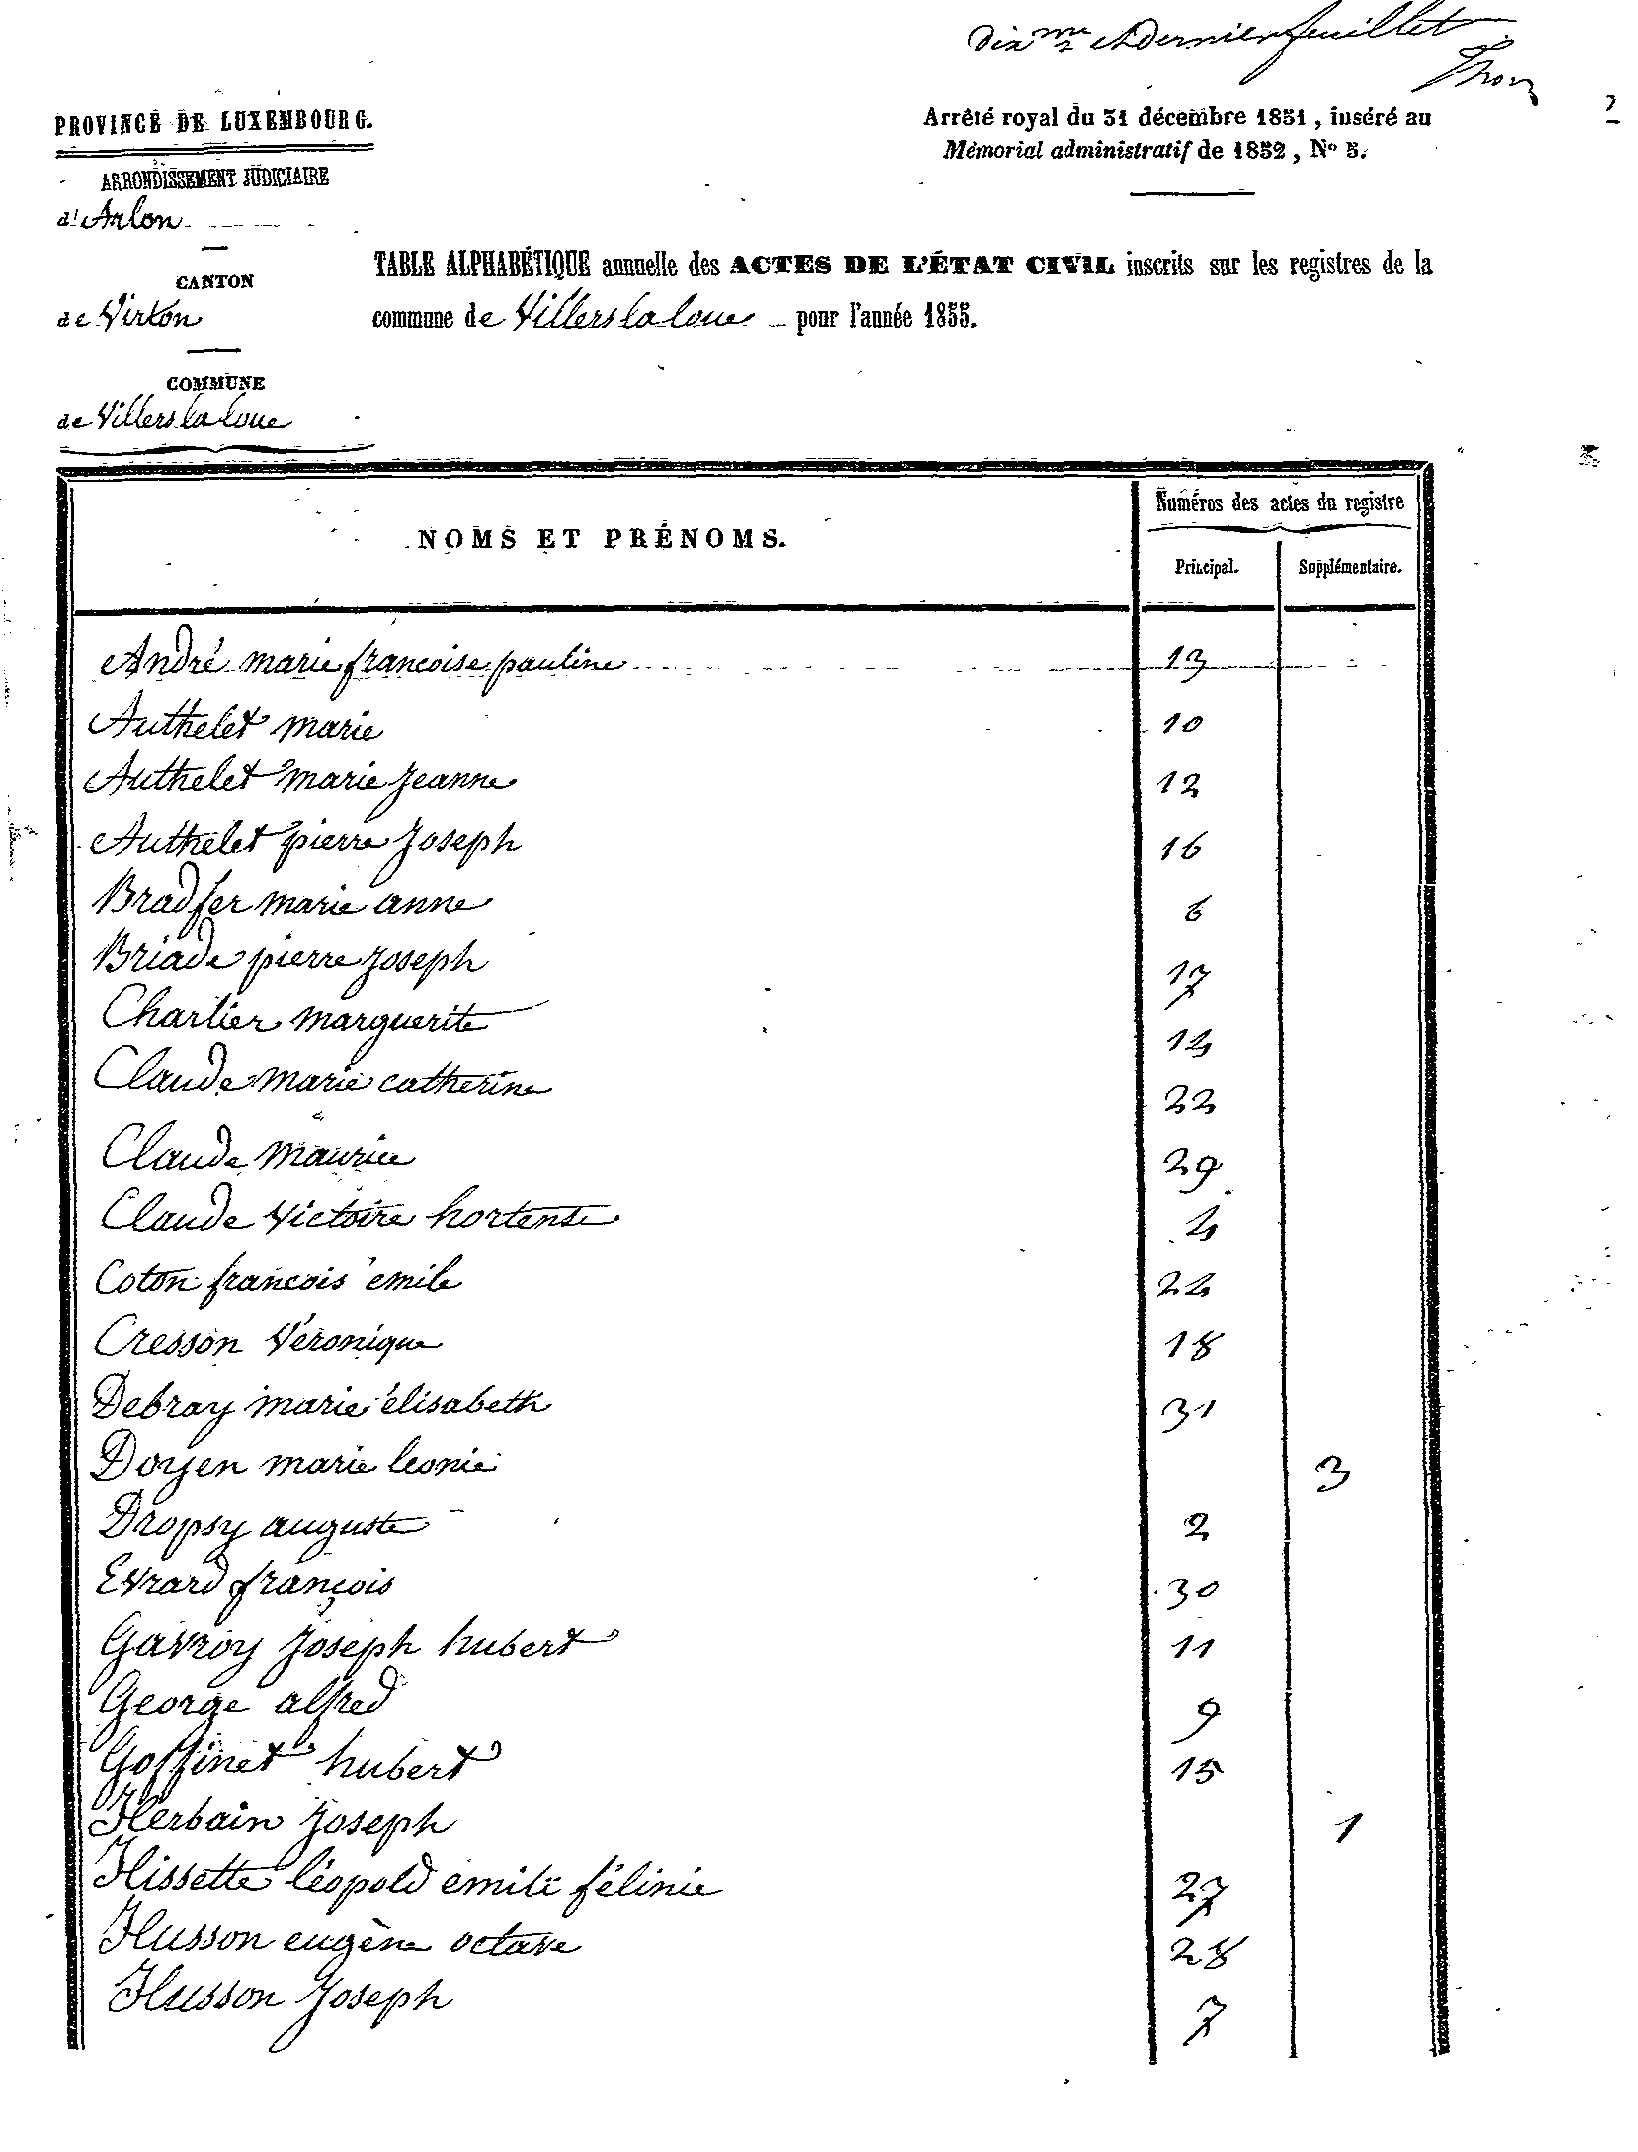 dix.me et dernier feuillet
PROVINCE DE LUXEMBOURG.
Arrêté royal du 31 décembre 1851, inséré au
Mémorial administratif de 1852, No 5.
ARRONDISSEMENT JUDICIAIRE
d'Arlon
CANTON
de Virton
TABLE ALPHABÉTIQUE annuelle des ACTES DE L'ÉTAT CIVIL inscrits sur les registres de la
commune de Villers la loue pour l'année 1855.
COMMUNE
de Villers la loue
NOMS ET PRÉNOMS.
Numéros des actes du registre
Principal. Supplémentaire.
André marie francoise pauline 13
Authelet marie 10
Authelet marie Jeanne 12
Authelet pierre Joseph 16
Bradfer marie anne 6
Briade pierre Joseph 17
Charlier marguerite 14
Claude marie catherine 22
Claude maurice 29
Claude Victoire hortense 4
Coton francois emile 24
Cresson Véronique 18
Debray marie élisabeth 31
Doyen marie leonie 3
Dropsy auguste 2
Evrard françois 30
Gavroy Joseph hubert 11
George alfred 9
Goffinet hubert 15
Herbain Joseph 1
Hissette léopold emile félinie 27
Husson eugène octave 28
Husson Joseph 7